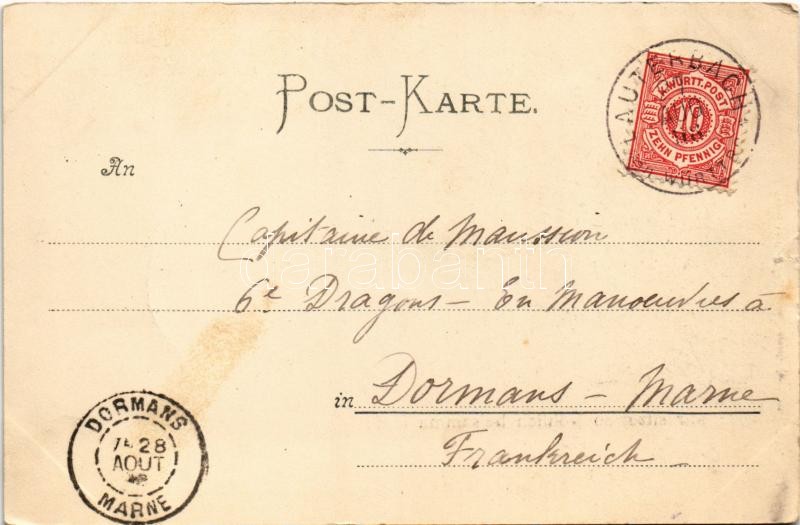 POST-KARTE.
LAUTERBACH
K. WÜRTT. POST
10
ZEHN PFENNIG
An
Capitaine de Maussion
6e Dragons - En Manoeuvres à
in Dormans - Marne
Frankreich
DORMANS
28
AOUT
MARNE
darabanth